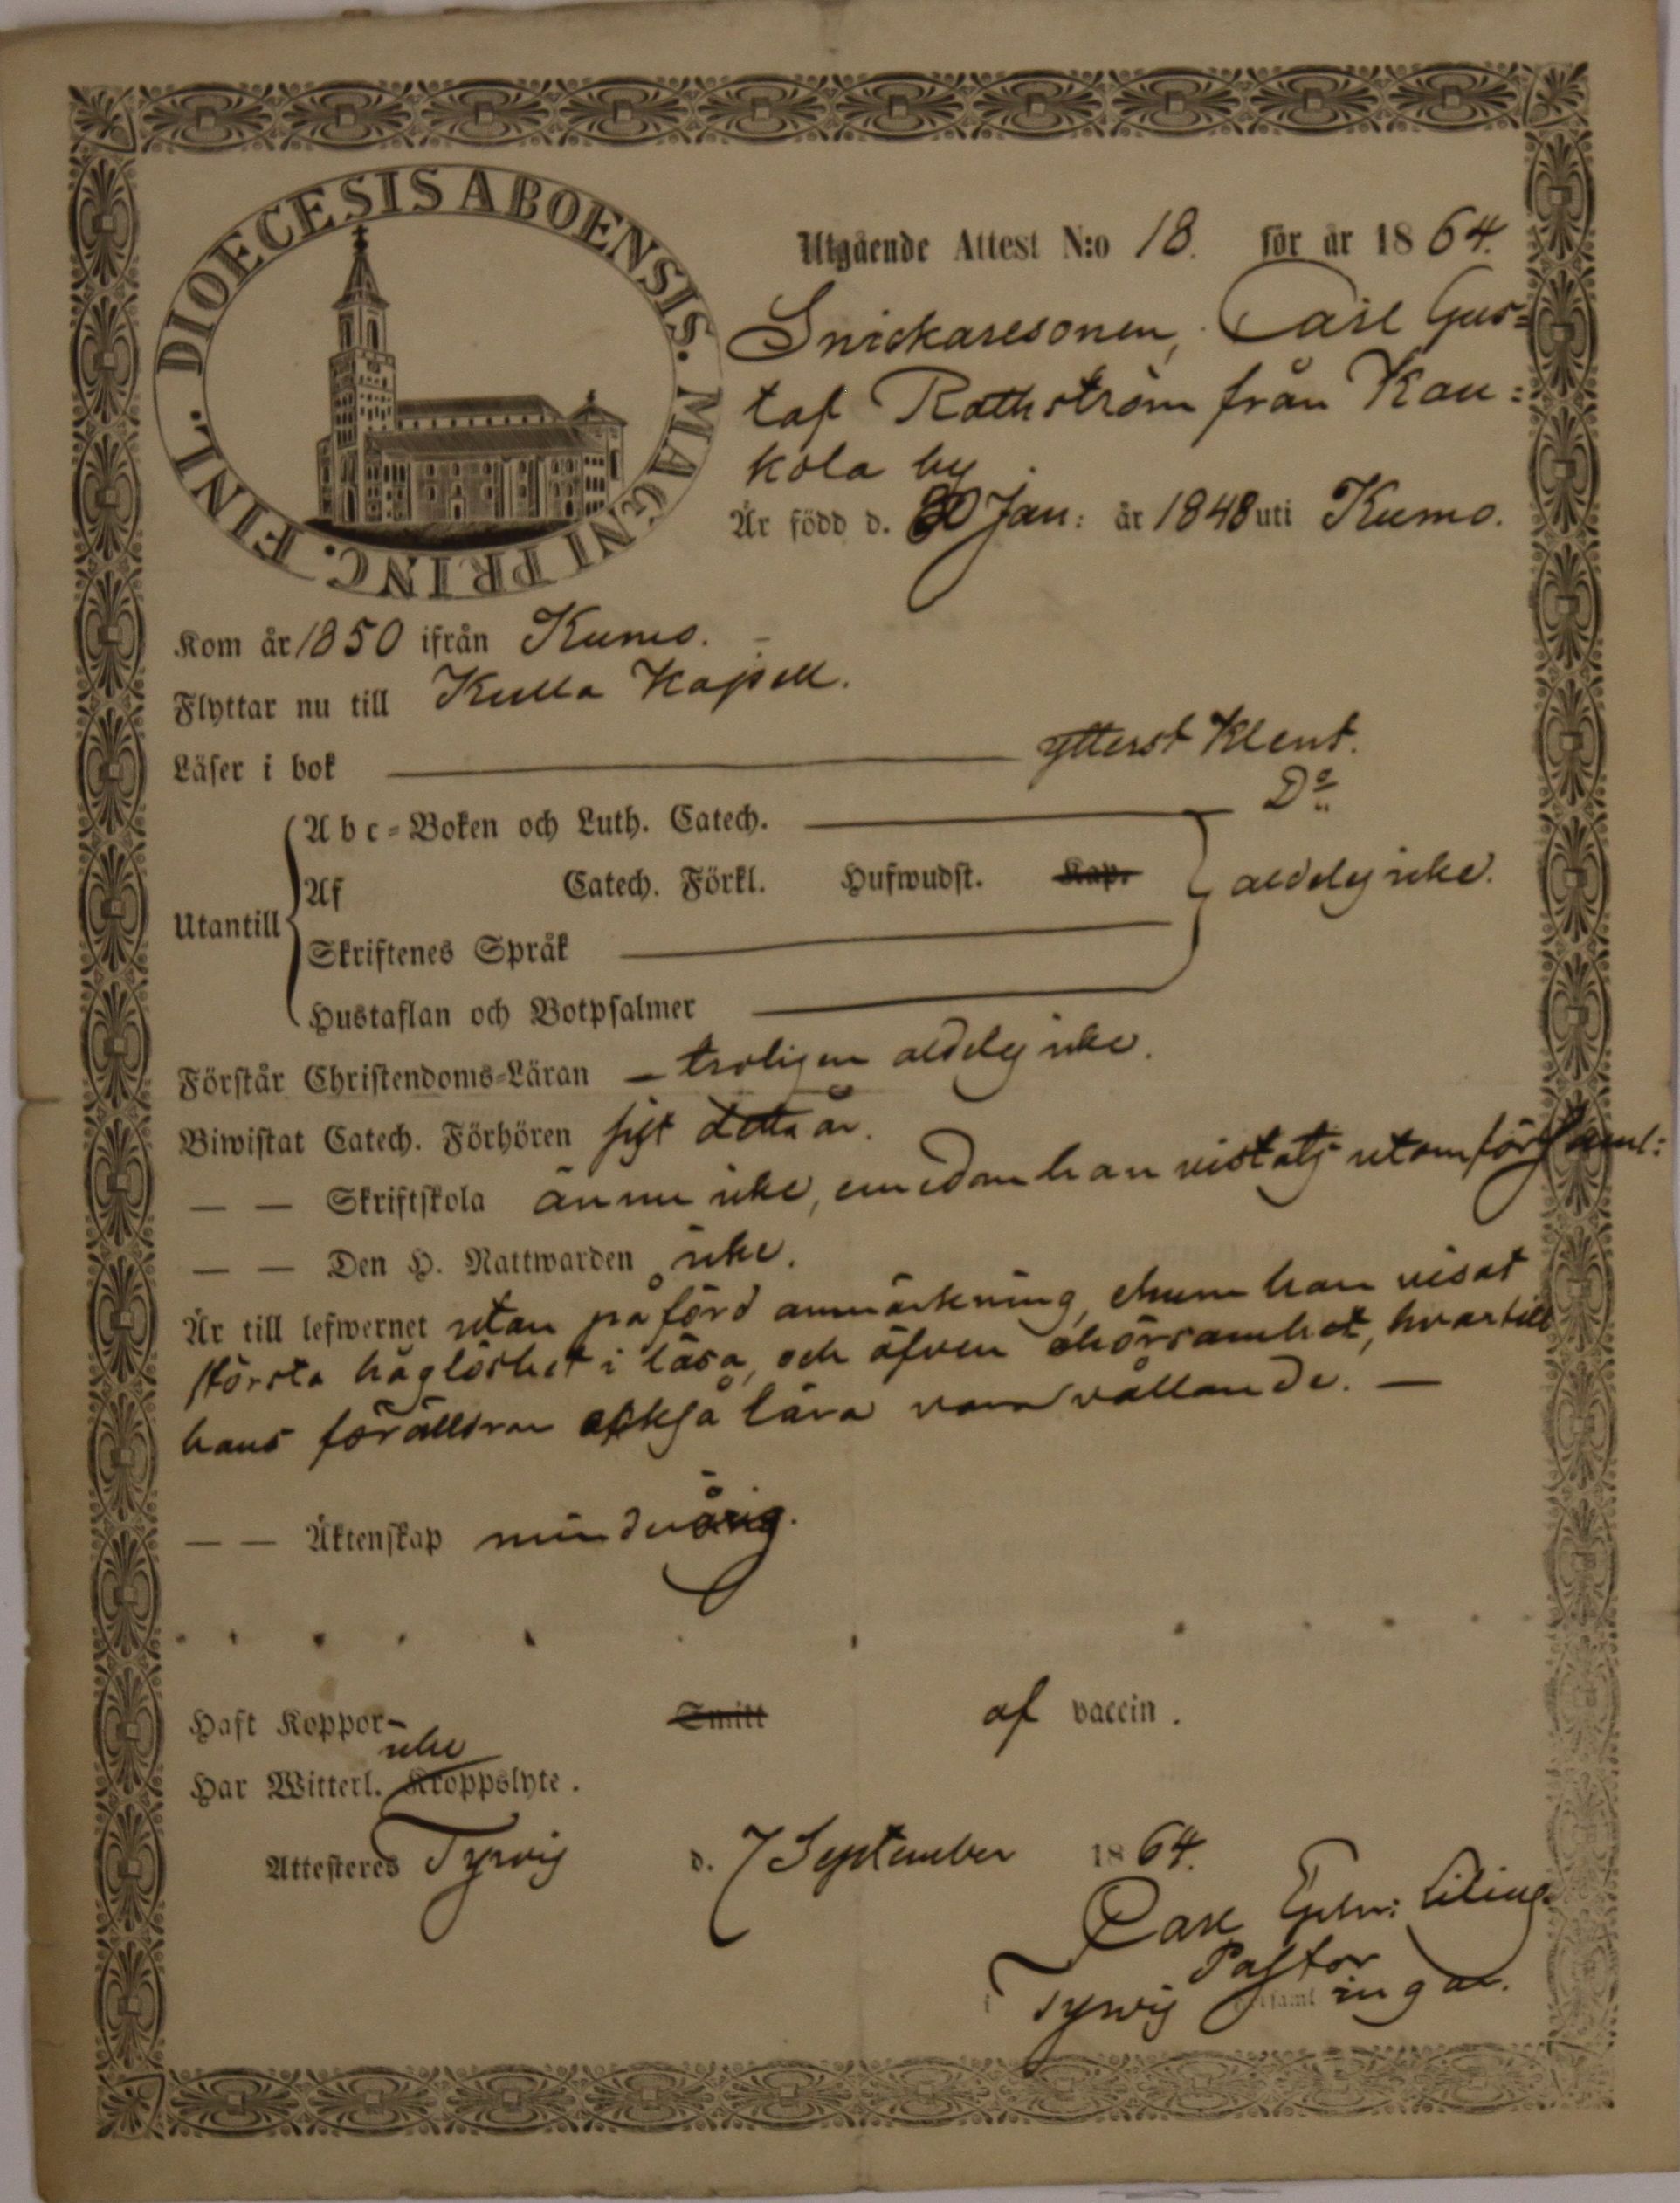 DIOECESIS ABOENSIS. MAGNI PRINC. FINL.
Utgående Attest N:o 18. för år 1864.
Snickaresonen, Carl Gus=
taf Rothström från Kau=
kola by
Är född d. 30 Jan: år 1848 uti Kumo.
Kom år 1850 ifrån Kumo.
Flyttar nu till Kulla Kapell.
Läser i bok ytterst klent.
Abc=Boken och Luth. Catech. Do
Utantill
Af Catech. Förkl. Hufwudst. Kap. aldeles icke.
Skriftenes Språk
Hustaflan och Botpsalmer
Förstår Christendoms=Läran – troligen aldeles icke.
Biwistat Catech. Förhören sist detta år.
— — Skriftskola ännu icke, emedan han vistats utom församl:
— — Den H. Nattwarden icke.
Är till lefwernet utan påförd anmärkning, ehuru han visat
största håglöshet i läsa, och äfven ohörsamhet, hvartill
hans föräldrar också lära vara vållande. —
— — Äktenskap minderårig.
Haft Koppor – Smitt af vaccin.
Har Witterl. icke Kroppslyte.
Attesteres Tyrvis d. 7 September 1864.
Carl
Pastor
i Tyrvis församlingar.